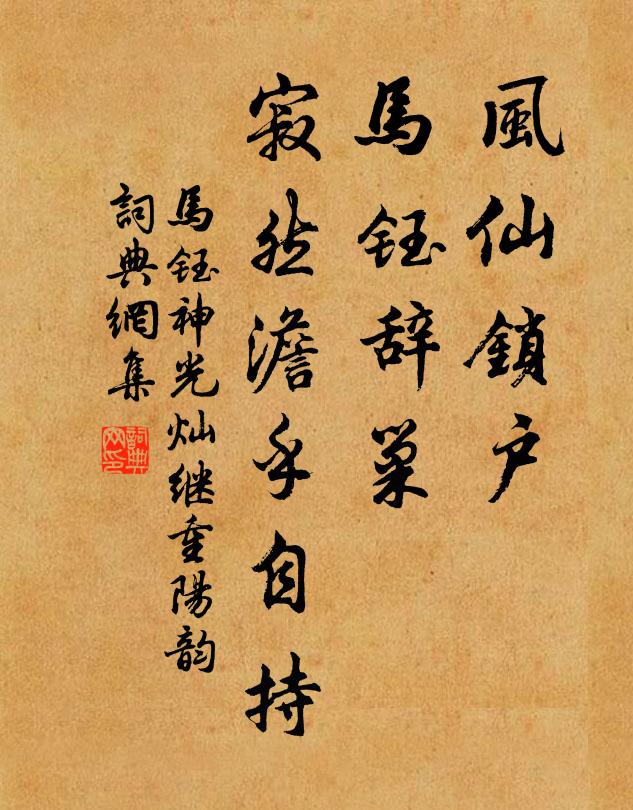 風仙鎖户
馬鈺辞巢
寂然澹乎自持
馬鈺神光灿继重陽韵
詞典網集
詞典网印